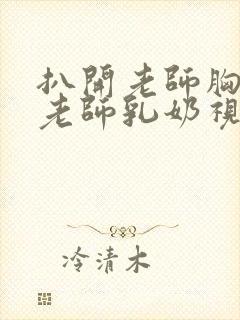 扒開老師胸
老師乳奶視
冷清木